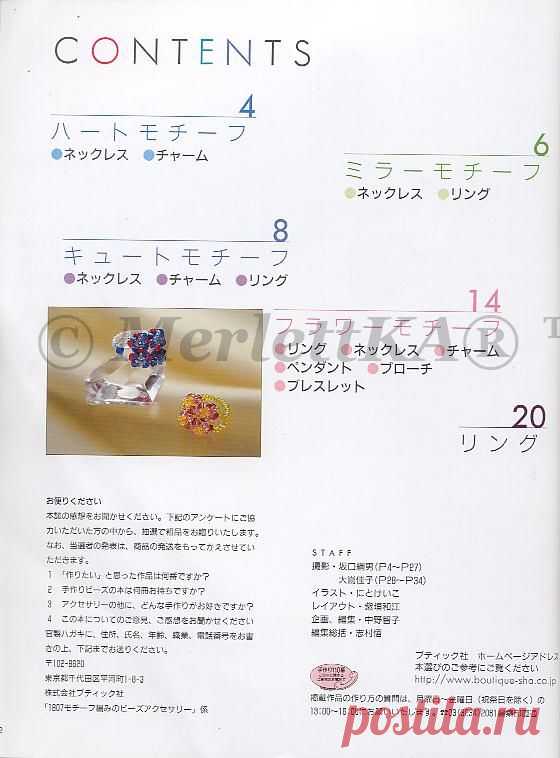 CONTENTS
4
ハートモチーフ
●ネックレス ●チャーム
6
ミラーモチーフ
●ネックレス ●リング
8
キュートモチーフ
●ネックレス ●チャーム ●リング
14
フラワーモチーフ
●リング ●ネックレス ●チャーム
●ペンダント ●ブローチ
●ブレスレット
20
リング
© MerlettKA®
お便りください
本誌の感想をお聞かせください。下記のアンケートにご協
力いただいた方の中から、抽選で粗品をお贈りいたします。
なお、当選者の発表は、商品の発送をもってかえさせてい
ただきます。
1 「作りたい」と思った作品は何番ですか?
2 手作りビーズの本は何冊お持ちですか?
3 アクセサリーの他に、どんな手作りがお好きですか?
4 この本についてのご意見、ご感想をお聞かせください
官製ハガキに、住所、氏名、年齢、職業、電話番号をお書
きの上、下記までお送りください。
〒102-8620
東京都千代田区平河町1-8-3
株式会社ブティック社
「1807モチーフ編みのビーズアクセサリー」係
STAFF
撮影・坂口綱男(P4〜P27)
大崎佳子(P28〜P34)
イラスト・にとけいこ
レイアウト・ 和江
企画、編集・中野智子
編集総括・志村悟
ブティック社 ホームページアドレス
本選びのご参考にご覧ください
http://www.boutique-sha.co.jp
手作り110番
掲載作品の作り方の質問は、月曜日〜金曜日(祝祭日を除く)の
postila.ru
2